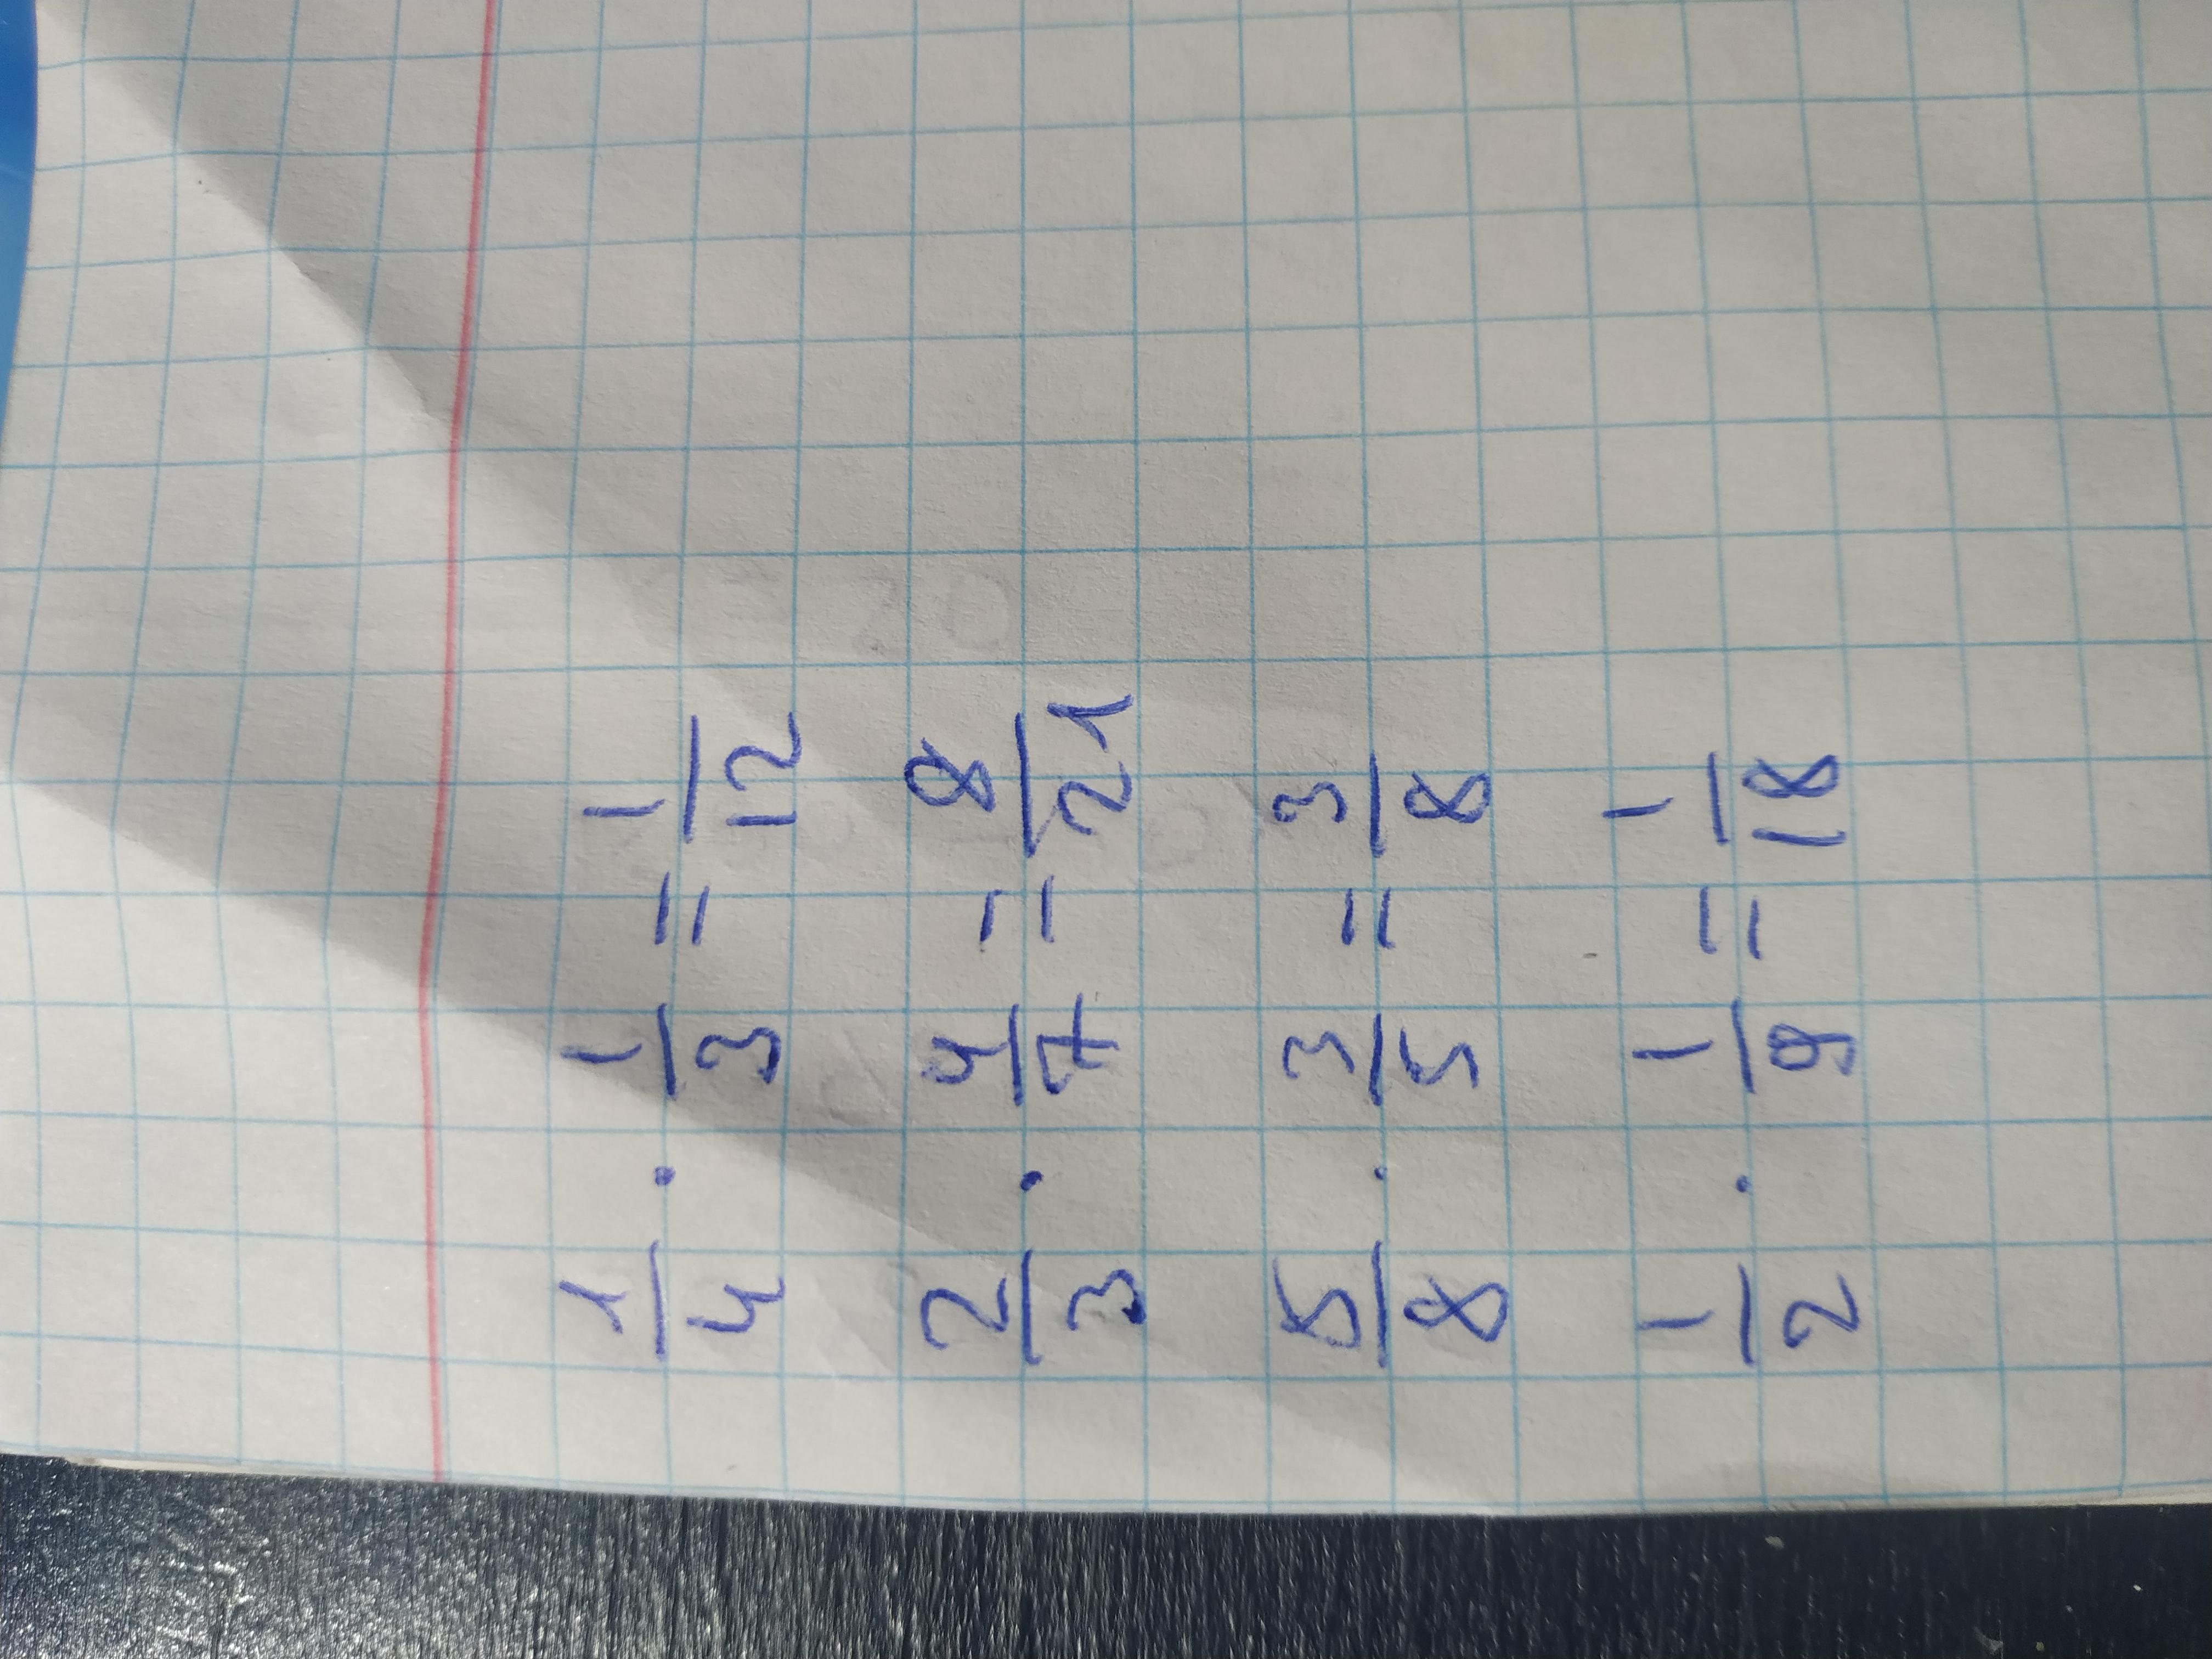 1/4 · 1/3 = 1/12
2/3 · 4/7 = 8/21
5/8 · 3/5 = 3/8
1/2 · 1/9 = 1/18